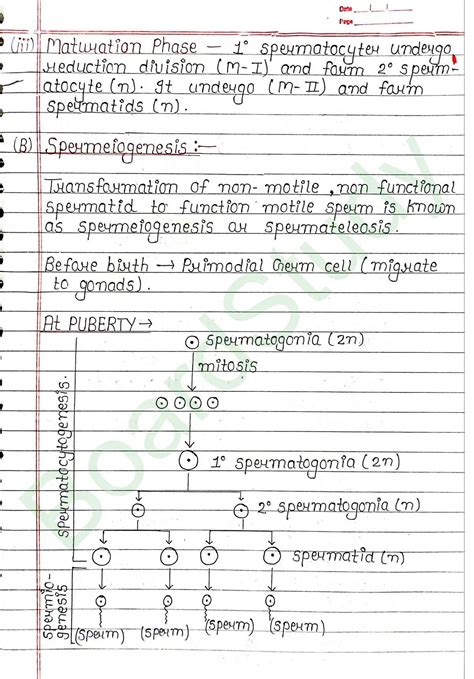 Date
Page
(iii) Maturation Phase – 1° spermatocytes undergo
reduction division (M-I) and form 2° sperm-
atocyte (n). It undergo (M-II) and form
spermatids (n).
(B) Spermeiogenesis :-
Transformation of non-motile, non functional
spermatid to function motile sperm is known
as spermeiogenesis or spermateleosis.
Before birth → Primodial Germ cell (migrate
to gonads).
At PUBERTY →
spermatogonia (2n)
mitosis
1° spermatogonia (2n)
2° spermatogonia (n)
spermatid (n)
(sperm) (sperm) (sperm) (sperm)
spermatocytogenesis.
spermio-
genesis
BoardStudy